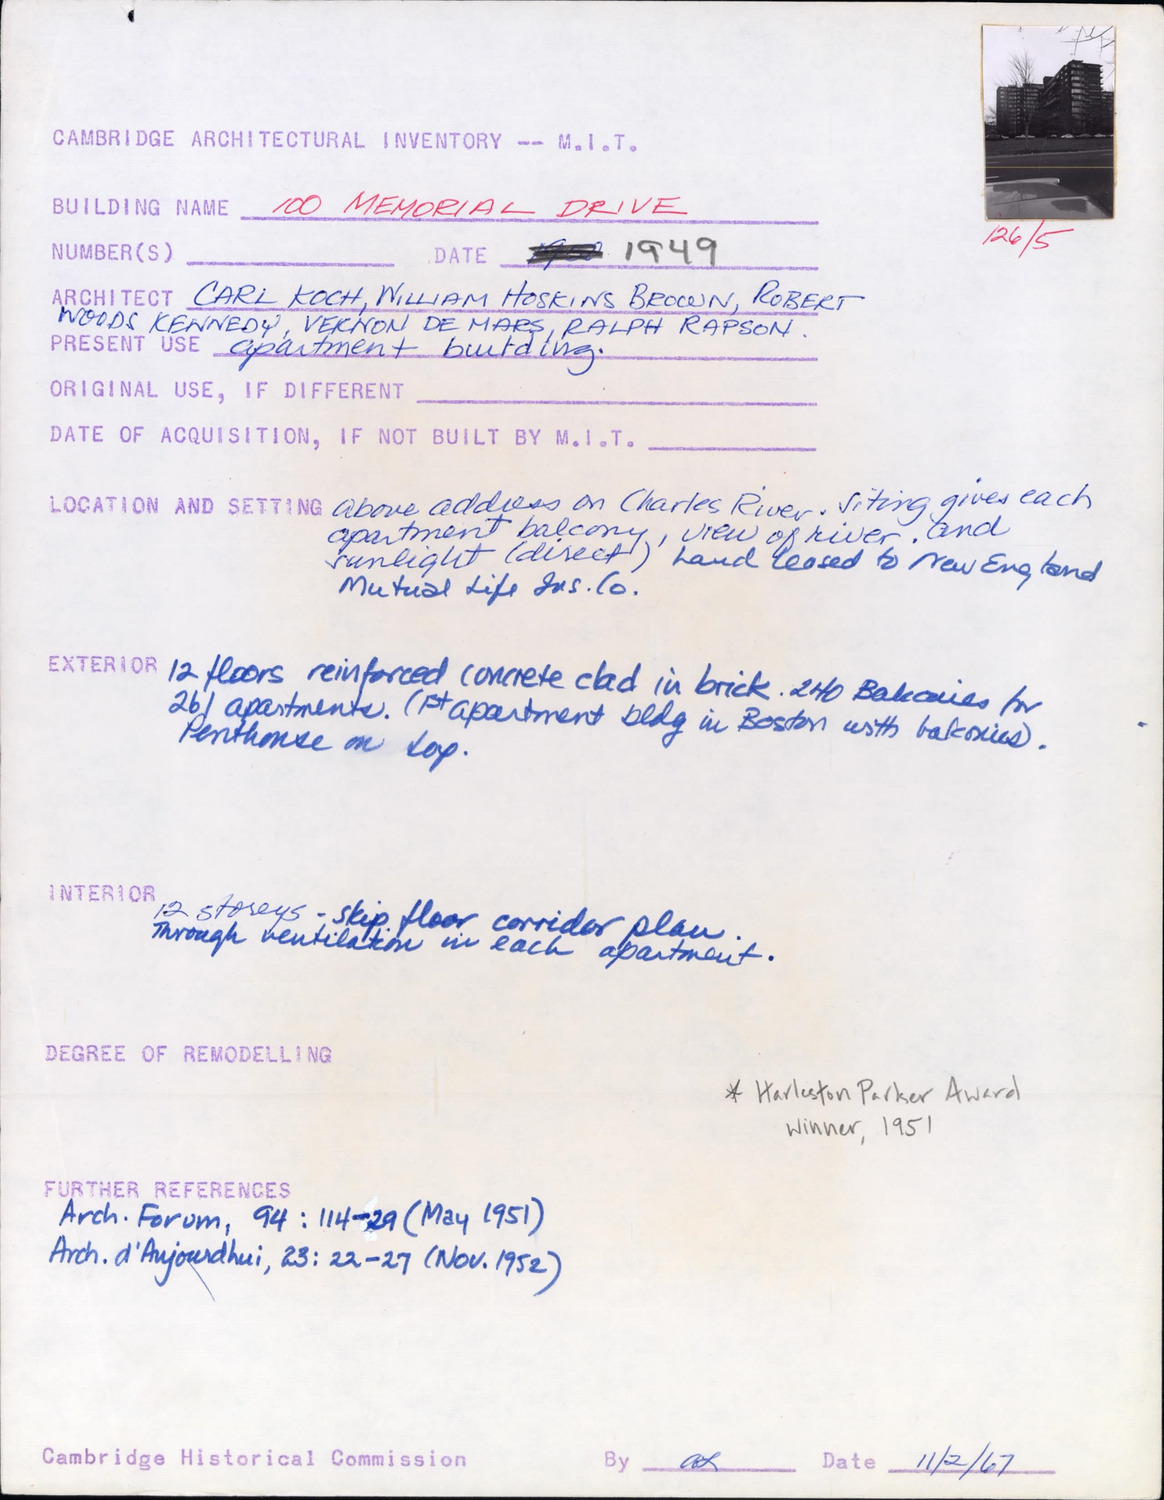 CAMBRIDGE ARCHITECTURAL INVENTORY -- M.I.T.
126/5
BUILDING NAME 100 MEMORIAL DRIVE
NUMBER(S) DATE 1949
ARCHITECT CARL KOCH, WILLIAM HOSKINS BROWN, ROBERT
WOODS KENNEDY, VERNON DE MARS, RALPH RAPSON.
PRESENT USE apartment building.
ORIGINAL USE, IF DIFFERENT
DATE OF ACQUISITION, IF NOT BUILT BY M.I.T.
LOCATION AND SETTING above address on Charles River. Siting gives each
apartment balcony, view of river, and
sunlight (direct) Land leased to New England
Mutual Life Ins. Co.
EXTERIOR 12 floors reinforced concrete clad in brick. 240 Balconies for
261 apartments. (1st apartment bldg in Boston with balconies).
Penthouse on top.
INTERIOR
12 storeys - skip floor corridor plan.
Through ventilation in each apartment.
DEGREE OF REMODELLING
* Harleston Parker Award
winner, 1951
FURTHER REFERENCES
Arch. Forum, 94 : 114-29 (May 1951)
Arch. d'Aujourdhui, 23: 22-27 (Nov. 1952)
Cambridge Historical Commission By Date 11/2/67